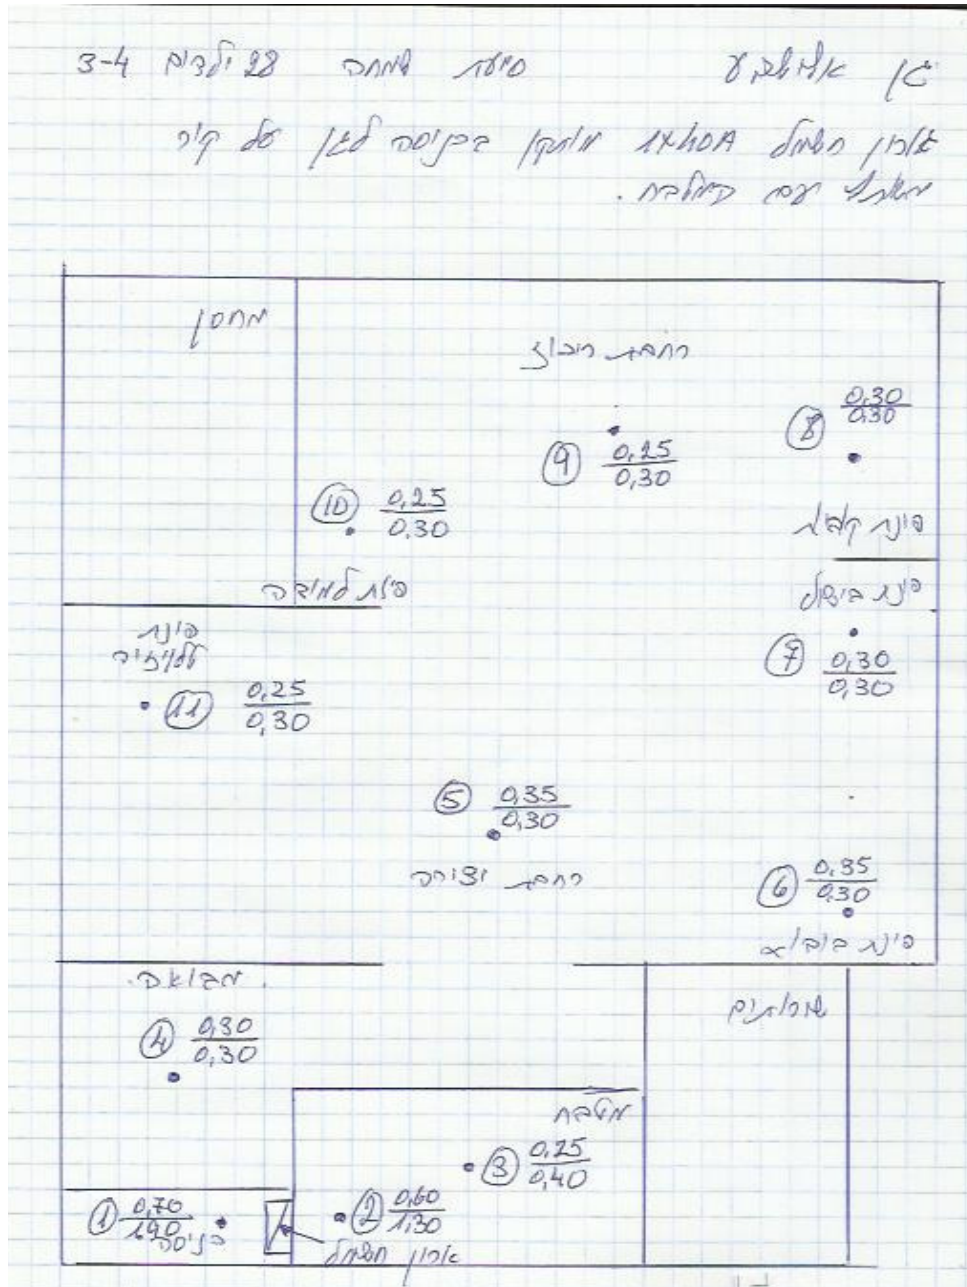 גן אלישבע סיעת שמחה 28 ילדים 3-4
ארון חשמל 1x40A מותקן בכניסה לגן על קיר
משותף עם המטבח.
מחסן
רחבת ריכוז
8 0,30
0,30
9 0,25
0,30
10 0,25
0,30
פינת קריאה
פינת למידה
פינת בישול
פינת
טלויזיה
7 0,30
0,30
11 0,25
0,30
5 0,35
0,30
רחבת יצירה
6 0,35
0,30
פינת בובה
מבואה
שירותים
4 0,30
0,30
מטבח
3 0,25
0,40
1 0,70
כניסה
2 0,60
1,30
ארון חשמל